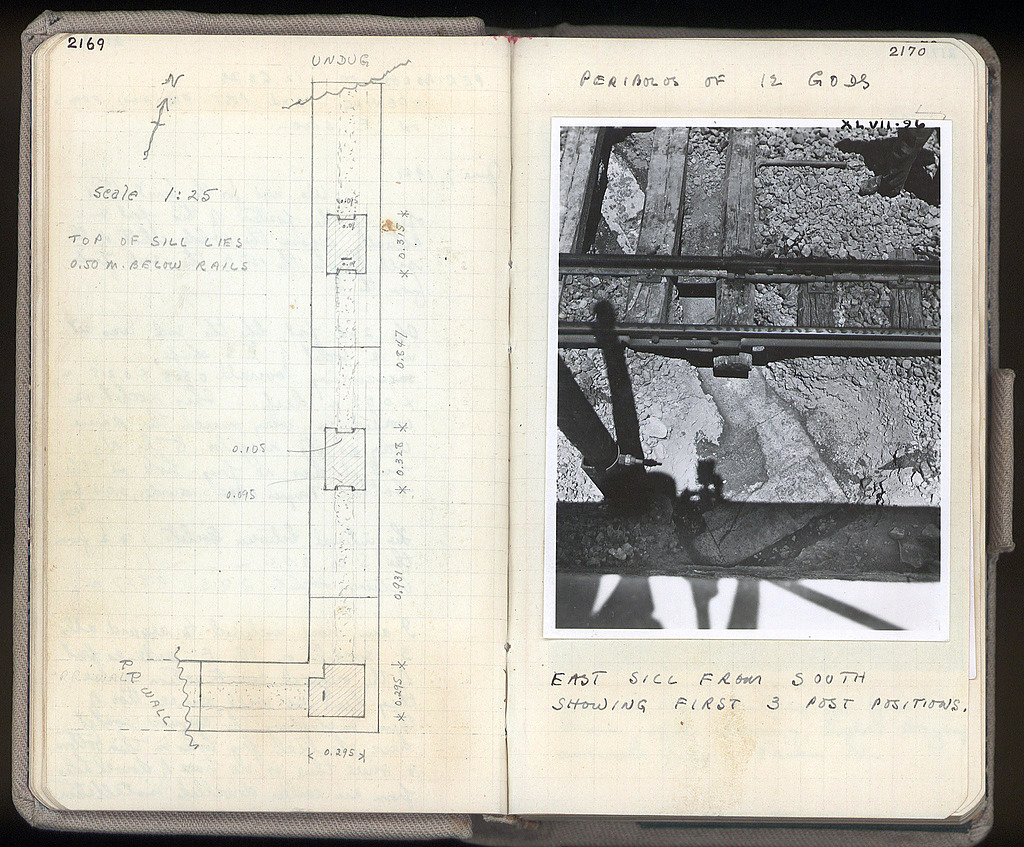 2169
UNDUG
N
Scale 1:25
TOP OF SILL LIES
0.50 M. BELOW RAILS
* 0.315 *
0.847
0.105
* 0.328 *
0.095
0.931
WALL
* 0.295 *
* 0.295 *
2170
PERIBOLOS OF 12 GODS
XLVII-96
EAST SILL FROM SOUTH
SHOWING FIRST 3 POST POSITIONS.